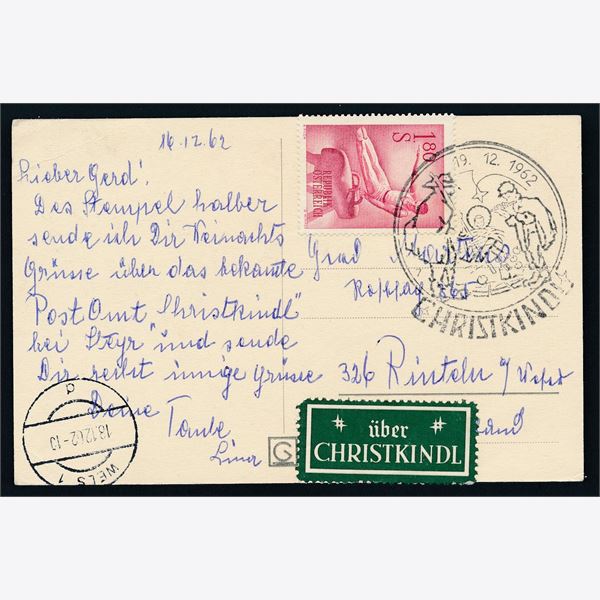 16.12.62
Lieber Gerd!
Des Stempel halber
sende ich Dir Weinachts
Grüsse über das bekannte
Post Amt Christkindl"
bei Steyr" und sende
Dir recht innige Grüsse
Deine Tante
Lina
REPUBLIK
ÖSTERREICH
1.80
S
19. 12. 1962
CHRISTKINDL
Gerd
326 Rinteln a/ Weser
über
CHRISTKINDL
G
18.12.62-10
WELS 1